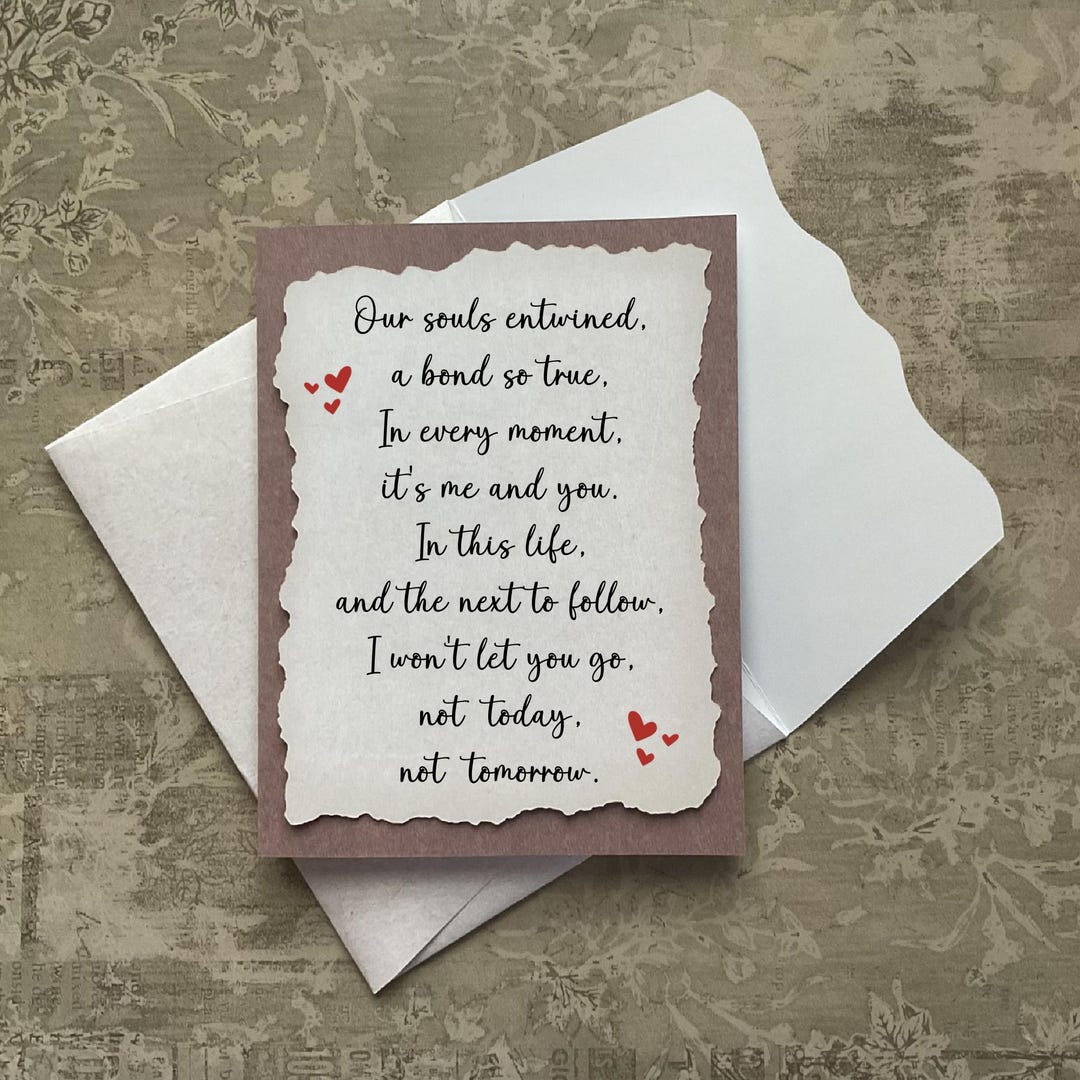 Our souls entwined,
a bond so true,
In every moment,
it's me and you.
In this life,
and the next to follow,
I won't let you go,
not today,
not tomorrow.